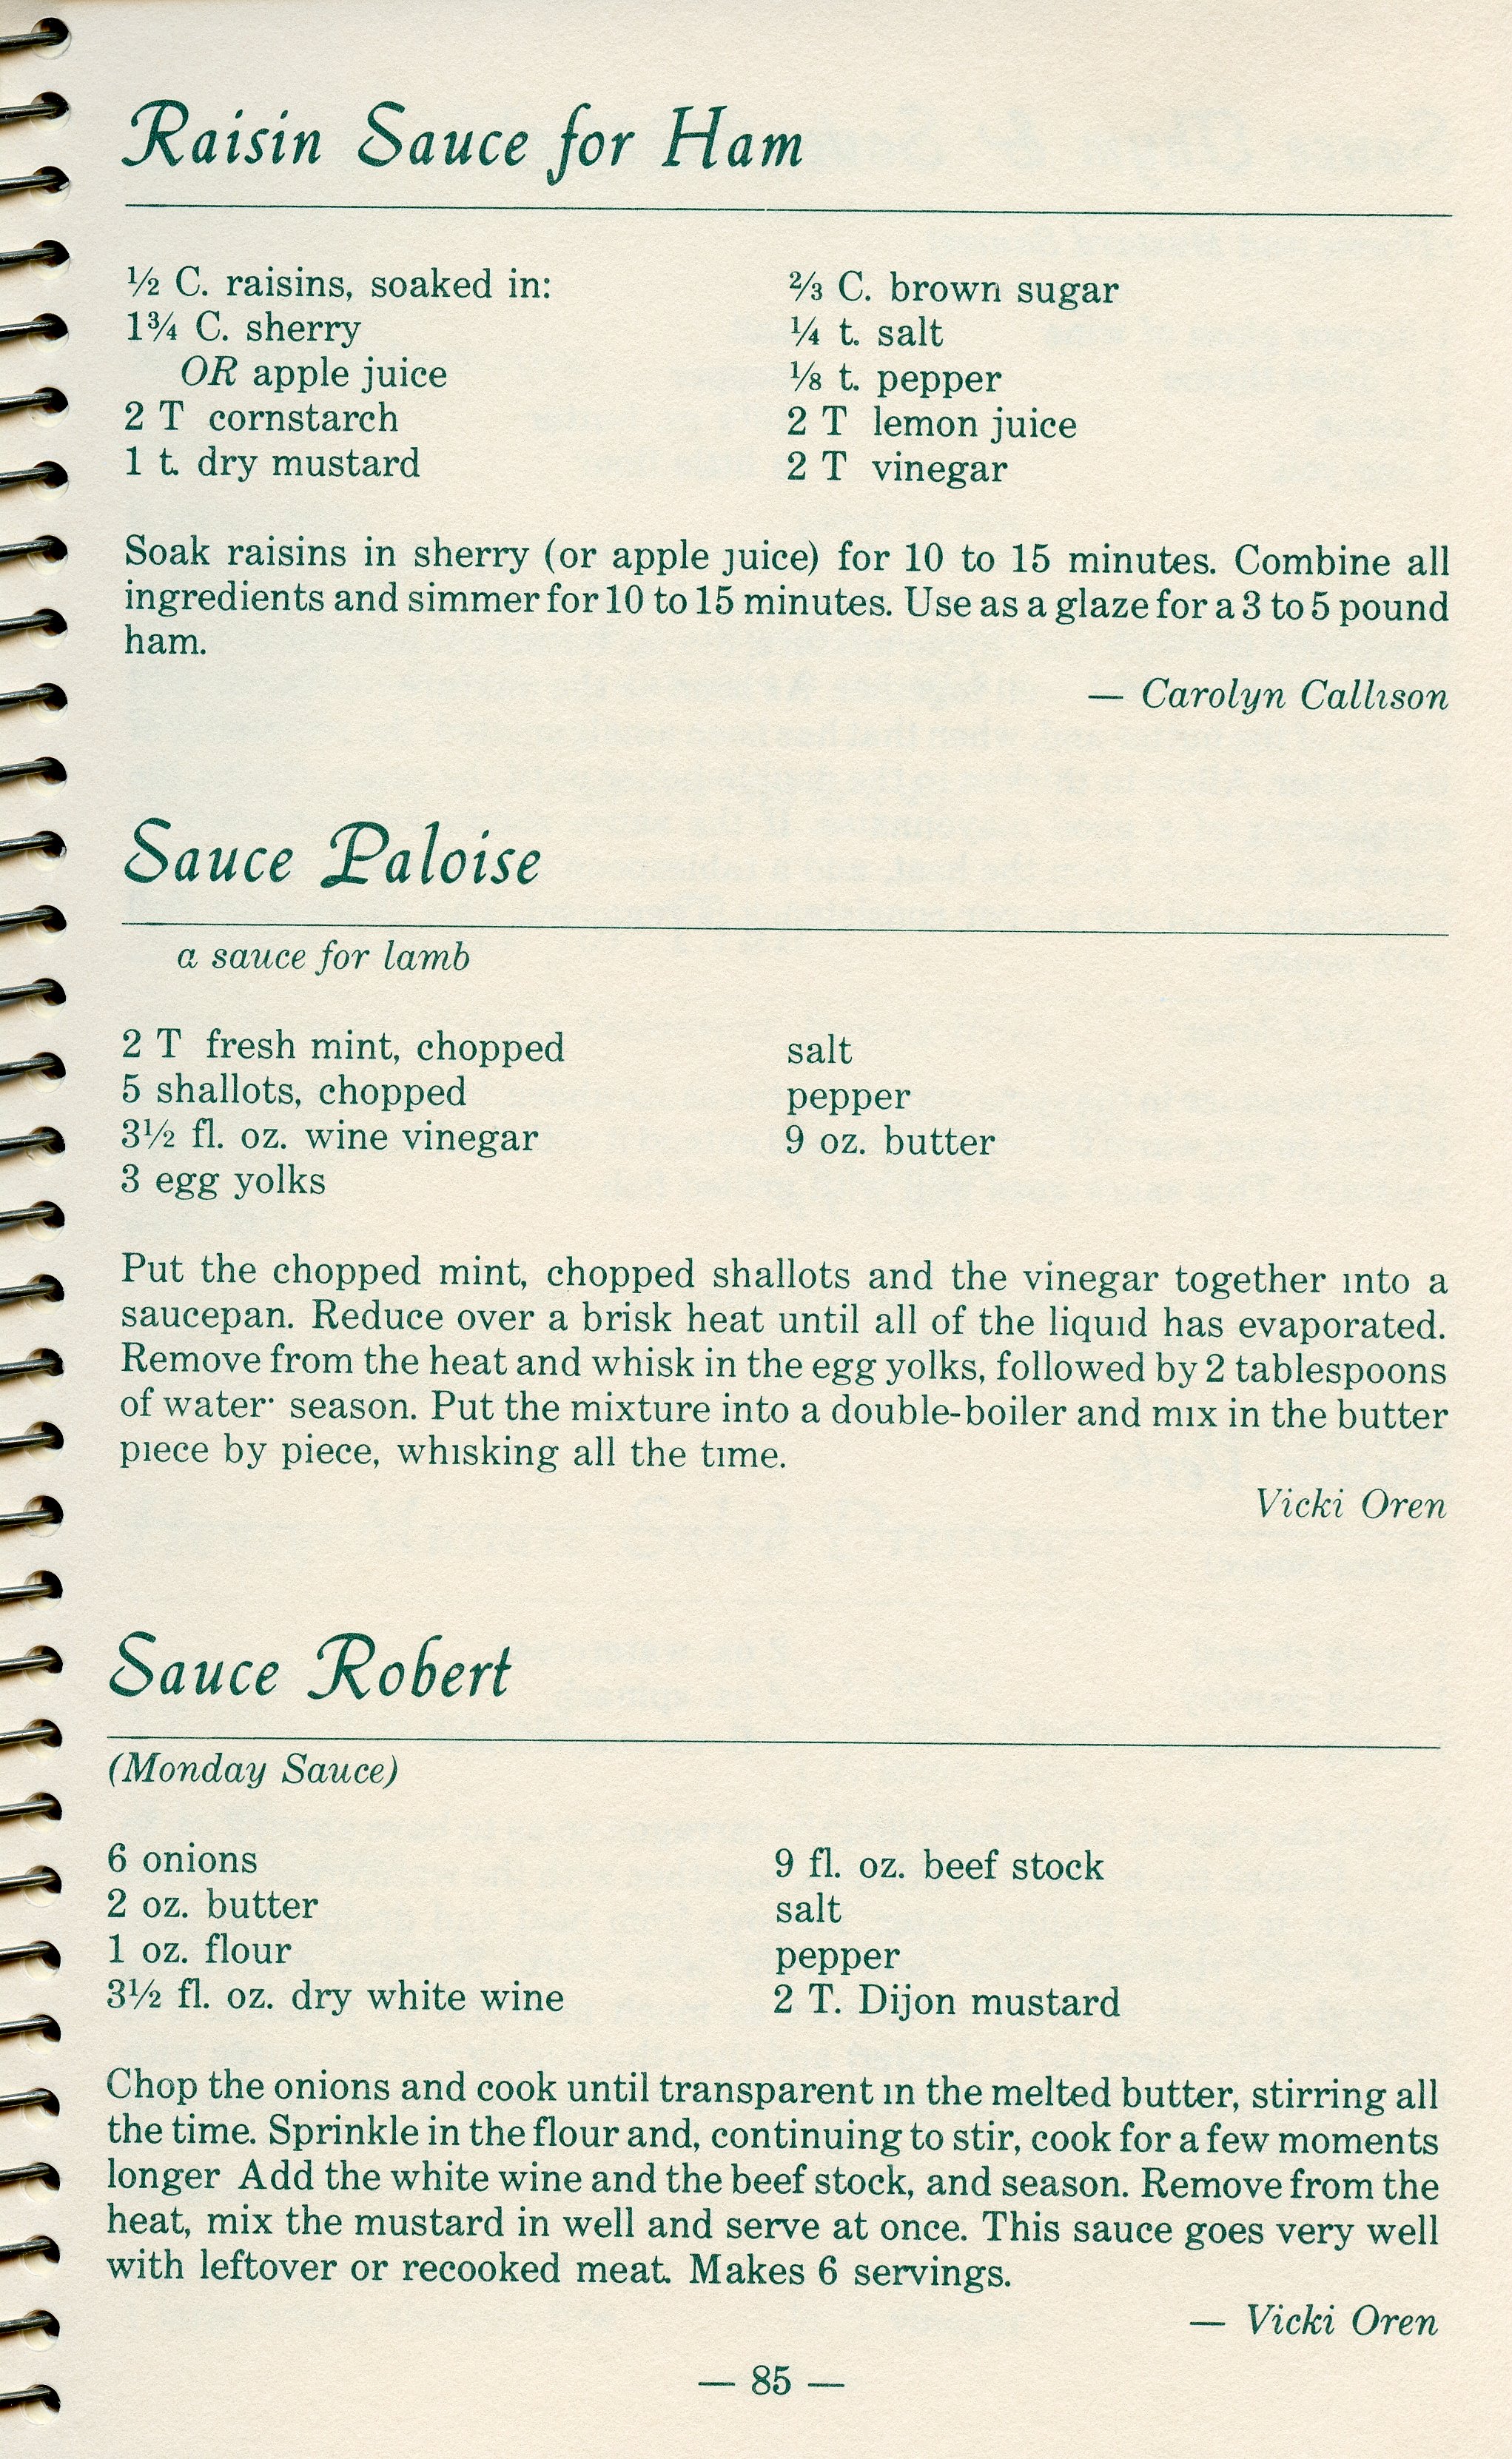 Raisin Sauce for Ham
½ C. raisins, soaked in:
1¾ C. sherry
OR apple juice
2 T cornstarch
1 t. dry mustard
⅔ C. brown sugar
¼ t. salt
⅛ t. pepper
2 T lemon juice
2 T vinegar
Soak raisins in sherry (or apple juice) for 10 to 15 minutes. Combine all
ingredients and simmer for 10 to 15 minutes. Use as a glaze for a 3 to 5 pound
ham.
— Carolyn Callison
Sauce Paloise
a sauce for lamb
2 T fresh mint, chopped
5 shallots, chopped
3½ fl. oz. wine vinegar
3 egg yolks
salt
pepper
9 oz. butter
Put the chopped mint, chopped shallots and the vinegar together into a
saucepan. Reduce over a brisk heat until all of the liquid has evaporated.
Remove from the heat and whisk in the egg yolks, followed by 2 tablespoons
of water· season. Put the mixture into a double-boiler and mix in the butter
piece by piece, whisking all the time.
Vicki Oren
Sauce Robert
(Monday Sauce)
6 onions
2 oz. butter
1 oz. flour
3½ fl. oz. dry white wine
9 fl. oz. beef stock
salt
pepper
2 T. Dijon mustard
Chop the onions and cook until transparent in the melted butter, stirring all
the time. Sprinkle in the flour and, continuing to stir, cook for a few moments
longer Add the white wine and the beef stock, and season. Remove from the
heat, mix the mustard in well and serve at once. This sauce goes very well
with leftover or recooked meat. Makes 6 servings.
— Vicki Oren
— 85 —